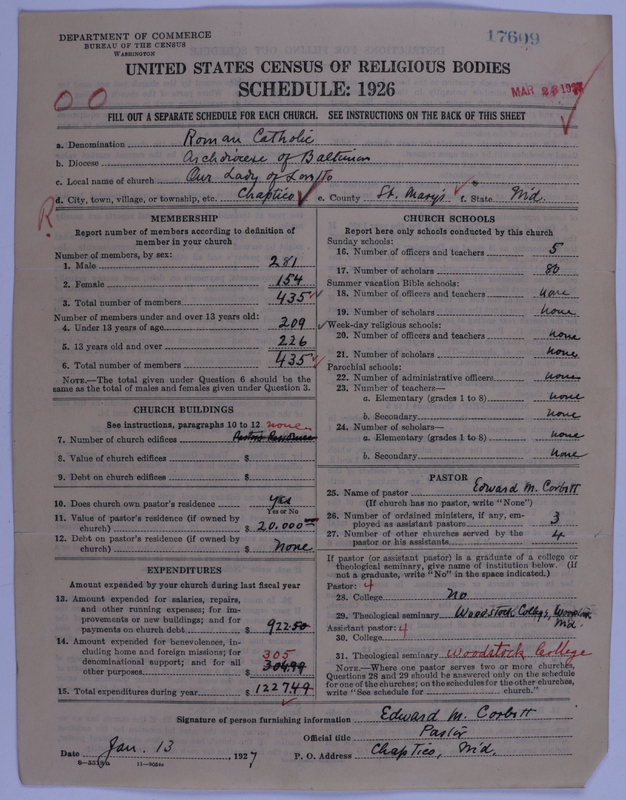 DEPARTMENT OF COMMERCE
BUREAU OF THE CENSUS
WASHINGTON
17609
UNITED STATES CENSUS OF RELIGIOUS BODIES
SCHEDULE: 1926
FILL OUT A SEPARATE SCHEDULE FOR EACH CHURCH. SEE INSTRUCTIONS ON THE BACK OF THIS SHEET
a. Denomination Roman Catholic
b. Diocese Archdiocese of Baltimore
c. Local name of church Our Lady of
d. City, town, village, or township, etc. Chaptico e. County St. Mary's f. State Md.
R
MEMBERSHIP
Report number of members according to definition of
member in your church
Number of members, by sex:
1. Male 281
2. Female 154
3. Total number of members 435
Number of members under and over 13 years old:
4. Under 13 years of age 209
5. 13 years old and over 226
6. Total number of members 435
NOTE.—The total given under Question 6 should be the
same as the total of males and females given under Question 3.
CHURCH BUILDINGS
See instructions, paragraphs 10 to 12 none
7. Number of church edifices Pastor's Residence
8. Value of church edifices $
9. Debt on church edifices $
10. Does church own pastor's residence yes
Yes or No
11. Value of pastor's residence (if owned by
church) $ 20.000
12. Debt on pastor's residence (if owned by
church) $ None
EXPENDITURES
Amount expended by your church during last fiscal year
13. Amount expended for salaries, repairs,
and other running expenses; for im-
provements or new buildings; and for
payments on church debt $ 922.50
14. Amount expended for benevolences, in-
cluding home and foreign missions; for 305
denominational support; and for all
other purposes $ 304.99
15. Total expenditures during year $ 1227.49
CHURCH SCHOOLS
Report here only schools conducted by this church
Sunday schools:
16. Number of officers and teachers 5
17. Number of scholars 80
Summer vacation Bible schools:
18. Number of officers and teachers none
19. Number of scholars none
Week-day religious schools:
20. Number of officers and teachers none
21. Number of scholars none
Parochial schools:
22. Number of administrative officers none
23. Number of teachers—
a. Elementary (grades 1 to 8) none
b. Secondary none
24. Number of scholars—
a. Elementary (grades 1 to 8) none
b. Secondary none
PASTOR
25. Name of pastor Edward M. Corbitt
(If church has no pastor, write "None")
26. Number of ordained ministers, if any, em-
ployed as assistant pastors 3
27. Number of other churches served by the
pastor or his assistants 4
If pastor (or assistant pastor) is a graduate of a college or
theological seminary, give name of institution below. (If
not a graduate, write "No" in the space indicated.)
Pastor: 4
28. College No
29. Theological seminary Woodstock College, Md.
Assistant pastor: 4
30. College
31. Theological seminary Woodstock College
NOTE.—Where one pastor serves two or more churches,
Questions 28 and 29 should be answered only on the schedule
for one of the churches; on the schedules for the other churches,
write "See schedule for church."
Signature of person furnishing information Edward M. Corbitt
Official title Pastor
Date Jan. 13 1927 P. O. Address Chaptico, Md.